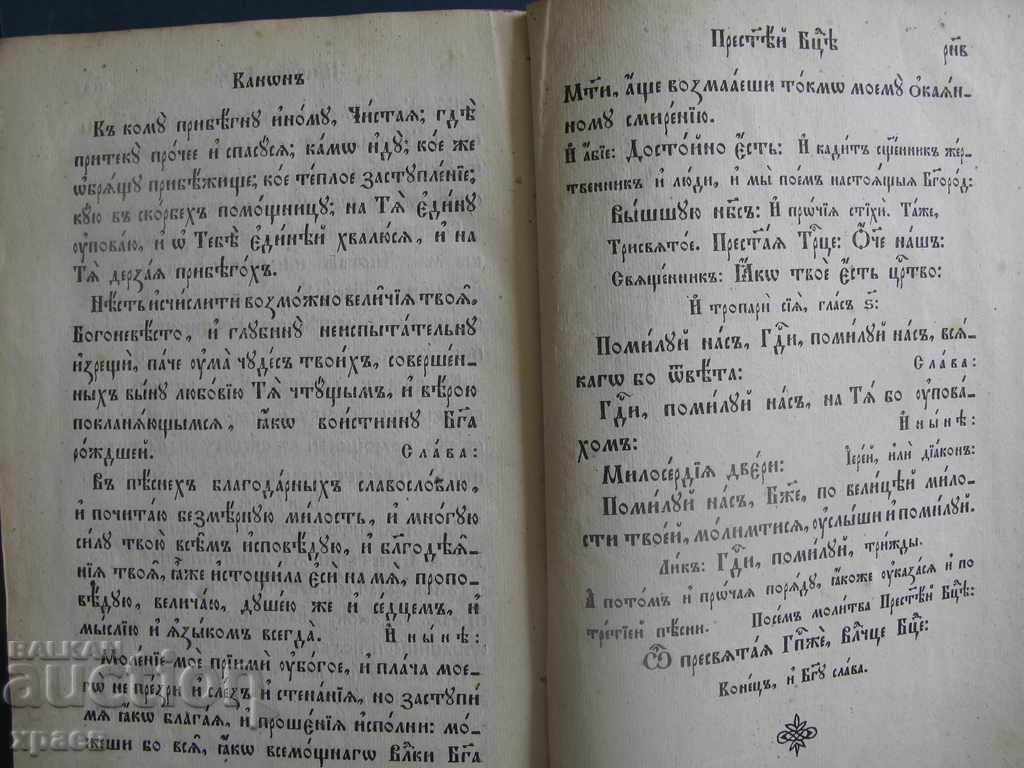 Канѡнъ
Къ комꙋ прибѣгнꙋ и҆номꙋ, Чи́стаѧ; гдѣ̀
притекꙋ̀ про́чее и҆ спасꙋ́сѧ; ка́мѡ и҆дꙋ̀; ко́е же
ѡ҆брѧ́щꙋ прибѣ́жище; ко́е те́плое застꙋпле́нїе;
кꙋ́ю въ ско́рбехъ помо́щницꙋ; на Тѧ̀ є҆ди́нꙋ
ᲂу҆пова́ю, и҆ ѡ҆ Тебѣ̀ є҆ди́нѣй хвалю́сѧ, и҆ на
Тѧ̀ дерза́ѧ прибѣго́хъ.
Нѣ́сть и҆счи́слити возмо́жно вели̑чїѧ твоѧ̑,
Богоневѣ́сто, и҆ глꙋбинꙋ̀ неиспыта́тельнꙋ
и҆зрещѝ, па́че ᲂу҆ма̀ чꙋде́съ твои́хъ, соверше́н-
ныхъ вы́нꙋ любо́вїю Тѧ̀ чтꙋ́щымъ, и҆ вѣ́рою
покланѧ́ющымсѧ, ꙗ҆́кѡ вои́стиннꙋ Бг҃а
ро́ждшей. Сла́ва:
Въ пѣ́снехъ благода́рныхъ славосло́влю,
и҆ почита́ю безмѣ́рнꙋю ми́лость, и҆ мно́гꙋю
си́лꙋ твою̀ всѣ́мъ и҆сповѣ́дꙋю, и҆ бл҃годѣѧ́-
нїѧ твоѧ̑, ꙗ҆̀же и҆стощи́ла є҆сѝ на мѧ̀, пропо-
вѣ́дꙋю, велича́ю, дꙋше́ю же и҆ се́дцемъ, и҆
мы́слїю и҆ ꙗ҆зы́комъ всегда̀. И҆ ны́нѣ:
Моле́нїе моѐ прїимѝ ᲂу҆бо́гое, и҆ пла́ча мое-
гѡ̀ не пре́зри и҆ сле́зъ и҆ стена́нїѧ, но застꙋпи́
мѧ ꙗ҆́кѡ блага́ѧ, и҆ проше́нїѧ и҆спо́лни: мо́-
жеши бо всѧ̑, ꙗ҆́кѡ всемо́щнагѡ вл҃ки Бг҃а
Прест҃ѣ́й Бц҃ѣ
рн҃в
Мт҃и, а҆́ще возмага́еши то́кмѡ моемꙋ̀ ѻ҆каѧ́н-
номꙋ смире́нїю.
И҆ а҆́бїе: Досто́йно є҆́сть: И҆ кади́тъ сщ҃е́нникъ же́р-
твенникъ и҆ лю́ди, и҆ мы̀ пое́мъ настоѧ́щыѧ Бг҃оро́д:
Вы́шшꙋю нб҃съ: И҆ прѡ́чїѧ стїхѝ. Та́же,
Трисвѧто́е. Прест҃а́ѧ Трⷪ҇це: Ѻ҆́че на́шъ:
Свѧще́нникъ: Ꙗ҆́кѡ твоѐ є҆́сть цр҃тво:
И҆ тропарѝ сїѧ̑, гла́съ ѕ҃:
Поми́лꙋй на́съ, Гдⷭ҇и, поми́лꙋй на́съ, всѧ́-
кагѡ бо ѿвѣ́та: Сла́ва:
Гдⷭ҇и, поми́лꙋй на́съ, на Тѧ́ бо ᲂу҆пова́-
хомъ: И҆ ны́нѣ:
Милосе́рдїѧ две́ри: І҆ере́й, и҆лѝ дїа́конъ:
Поми́лꙋй на́съ, Бж҃е, по вели́цѣй ми́ло-
сти твое́й, мо́лимтисѧ, ᲂу҆слы́ши и҆ поми́лꙋй.
Ли́къ: Гдⷭ҇и, поми́лꙋй, три́жды.
А҆ пото́мъ и҆ прѡ́чаѧ порѧ́дꙋ, ꙗ҆́коже ᲂу҆каза́сѧ и҆ по
тре́тїей пѣ́сни. Посе́мъ моли́тва Прест҃ѣ́й Бц҃ѣ:
Ѽ пресвѧта́ѧ Гпⷭ҇же́, влⷣчце Бц҃е:
Коне́цъ, и҆ Бг҃ꙋ сла́ва.
БАЛКАН
auction
храев